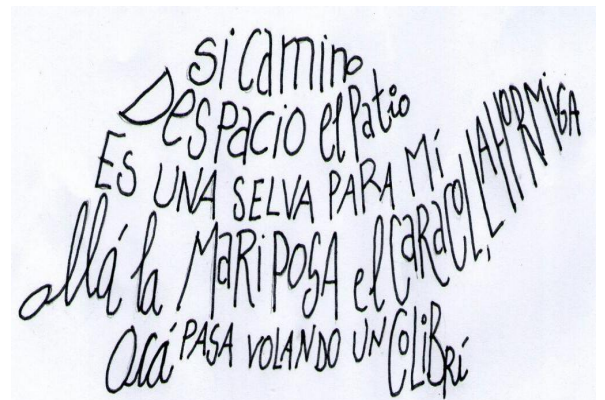 Si Camino
Despacio el Patio
Es UNA SELVA PARA Mí
allá la MARiPOSA el CARACOL, LA HORMIGA
Acá PASA VOLANDO UN COLiBRí